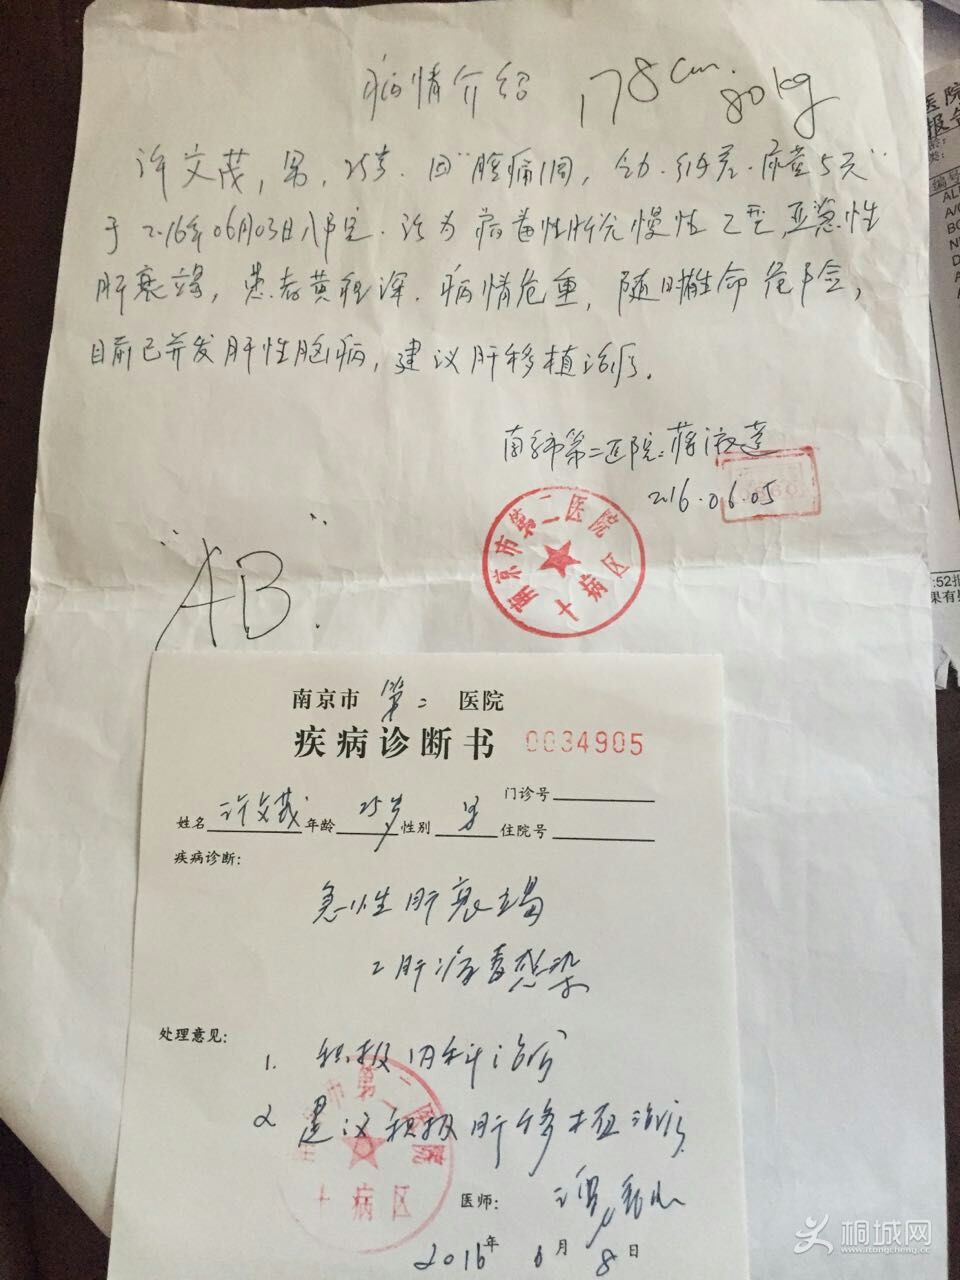 病情介绍
178cm.
80kg
许文茂，男，25岁.因"腔痛1周，乏力.纳差.尿黄5天"
于2016年06月03日入院.诊为病毒性肝炎慢性乙型,亚急性
肝衰竭，患者黄疸深.病情危重，随时有生命危险，
目前已并发肝性脑病，建议肝移植治疗.
南京市第二医院:蒋
2016.06.05
南京市第二医院
十病区
"AB".
南京市第二医院
疾病诊断书 0034905
门诊号
姓名许文茂年龄25岁性别男住院号
疾病诊断:
急性肝衰竭
乙肝病毒感染
处理意见:
1. 积极内科治疗
2 建议积极肝移植治疗
南京市第二医院
十病区
医师:
2016年6月8日
医院
报告
类:
编号
:52报
桐城网
www.itongcheng.cc